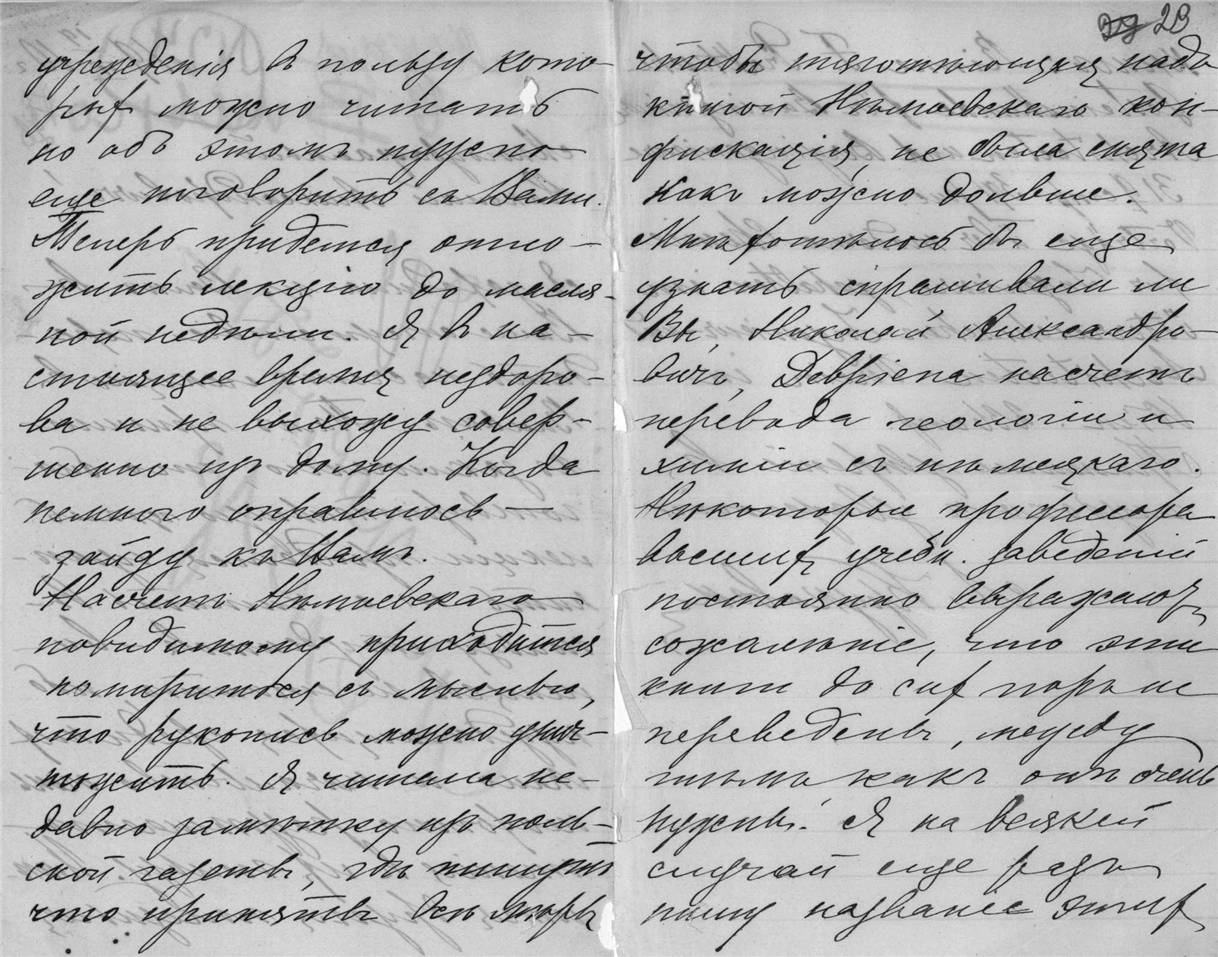 учрежденія въ пользу кото-
рых можно читать
но объ этомъ нужно
еще поговорить съ Вами.
Теперь придется отло-
жить лекцію до масля-
ной недѣли. Я въ на-
стоящее время нездоро-
ва и не выхожу совер-
шенно изъ дому. Когда
немного оправлюсь —
зайду къ Вамъ.
Насчетъ Нѣмоевскаго
повидимому приходится
помириться съ мыслью,
что рукопись можно унич-
тожить. Я читала не-
давно замѣтку изъ поль-
ской газеты, гдѣ пишутъ
что приняты всѣ мѣры
23
чтобы тяготѣющая надъ
книгой Нѣмоевскаго кон-
фискація, не была снята
какъ можно дольше.
Мнѣ хотѣлось бы еще
узнать спрашивали ли
Вы, Николай Александро-
вичъ, Девріена насчетъ
перевода геологіи и
химіи съ нѣмецкаго.
Нѣкоторые профессора
высших учебн. заведеній
постоянно выражают
сожалѣніе, что эти
книги до сих поръ не
переведены, между
тѣмъ какъ онѣ очень
нужны. Я на всякій
случай еще разъ
пишу названіе этих